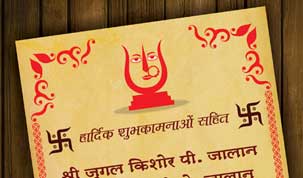 हार्दिक शुभकामनाओं सहित
श्री जुगल किशोर पी. जालान
जालान